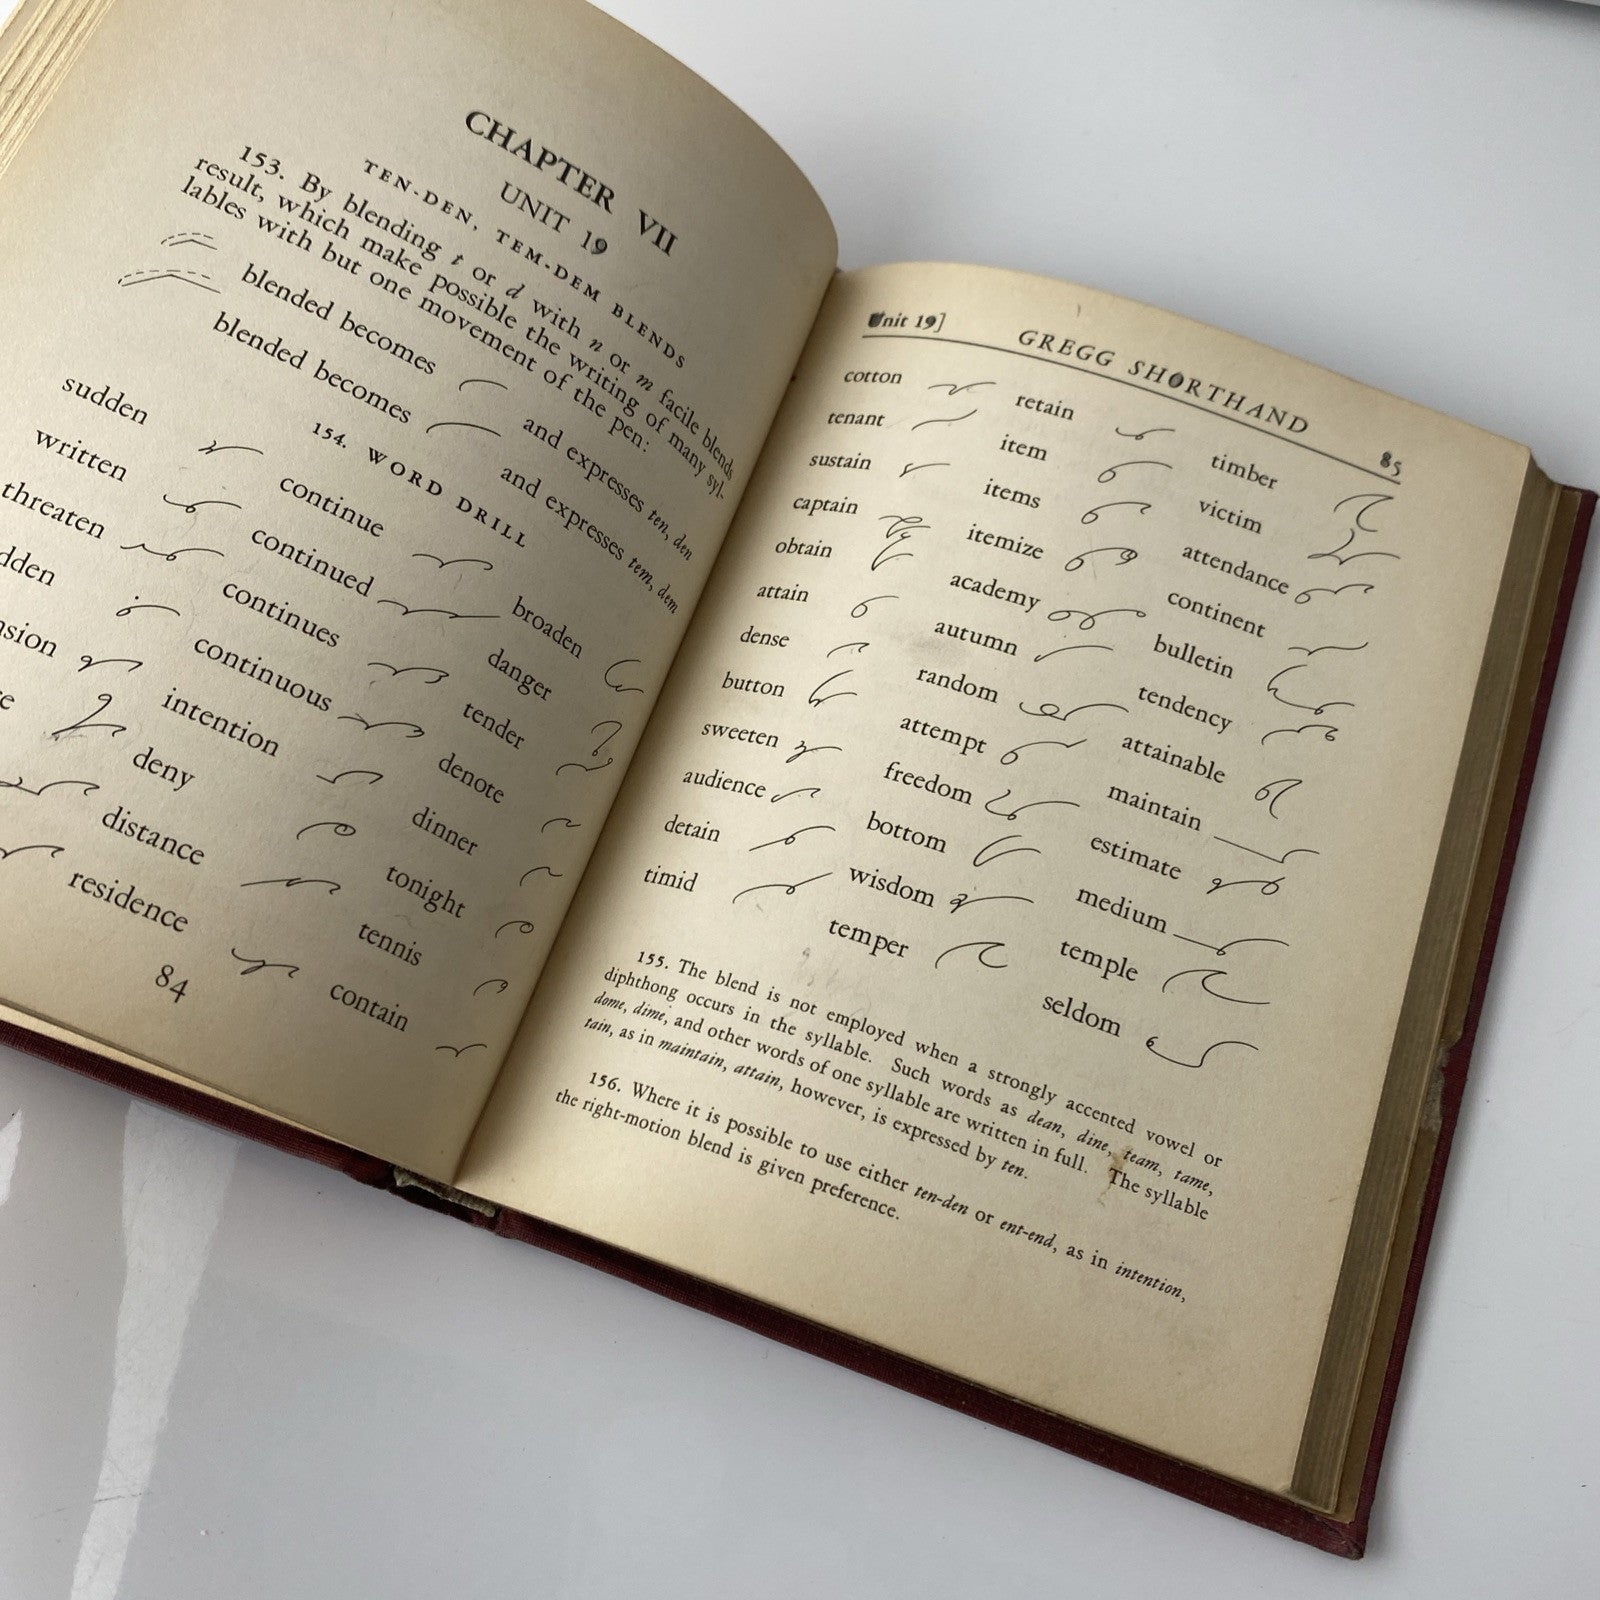 CHAPTER VII
UNIT 19
TEN-DEN, TEM-DEM BLENDS
153. By blending t or d with n or m facile blends
result, which make possible the writing of many syl-
lables with but one movement of the pen:
blended becomes and expresses ten, den
blended becomes and expresses tem, dem
154. WORD DRILL
sudden continue broaden
written continued danger
threaten continues tender
continuous denote
intention dinner
deny tonight
distance tennis
residence contain
84
Unit 19] GREGG SHORTHAND 85
cotton retain timber
tenant item victim
sustain items attendance
captain itemize continent
obtain academy bulletin
attain autumn tendency
dense random attainable
button attempt maintain
sweeten freedom estimate
audience bottom medium
detain wisdom temple
timid temper seldom
155. The blend is not employed when a strongly accented vowel or
diphthong occurs in the syllable. Such words as dean, dine, team, tame,
dome, dime, and other words of one syllable are written in full. The syllable
tain, as in maintain, attain, however, is expressed by ten.
156. Where it is possible to use either ten-den or ent-end, as in intention,
the right-motion blend is given preference.